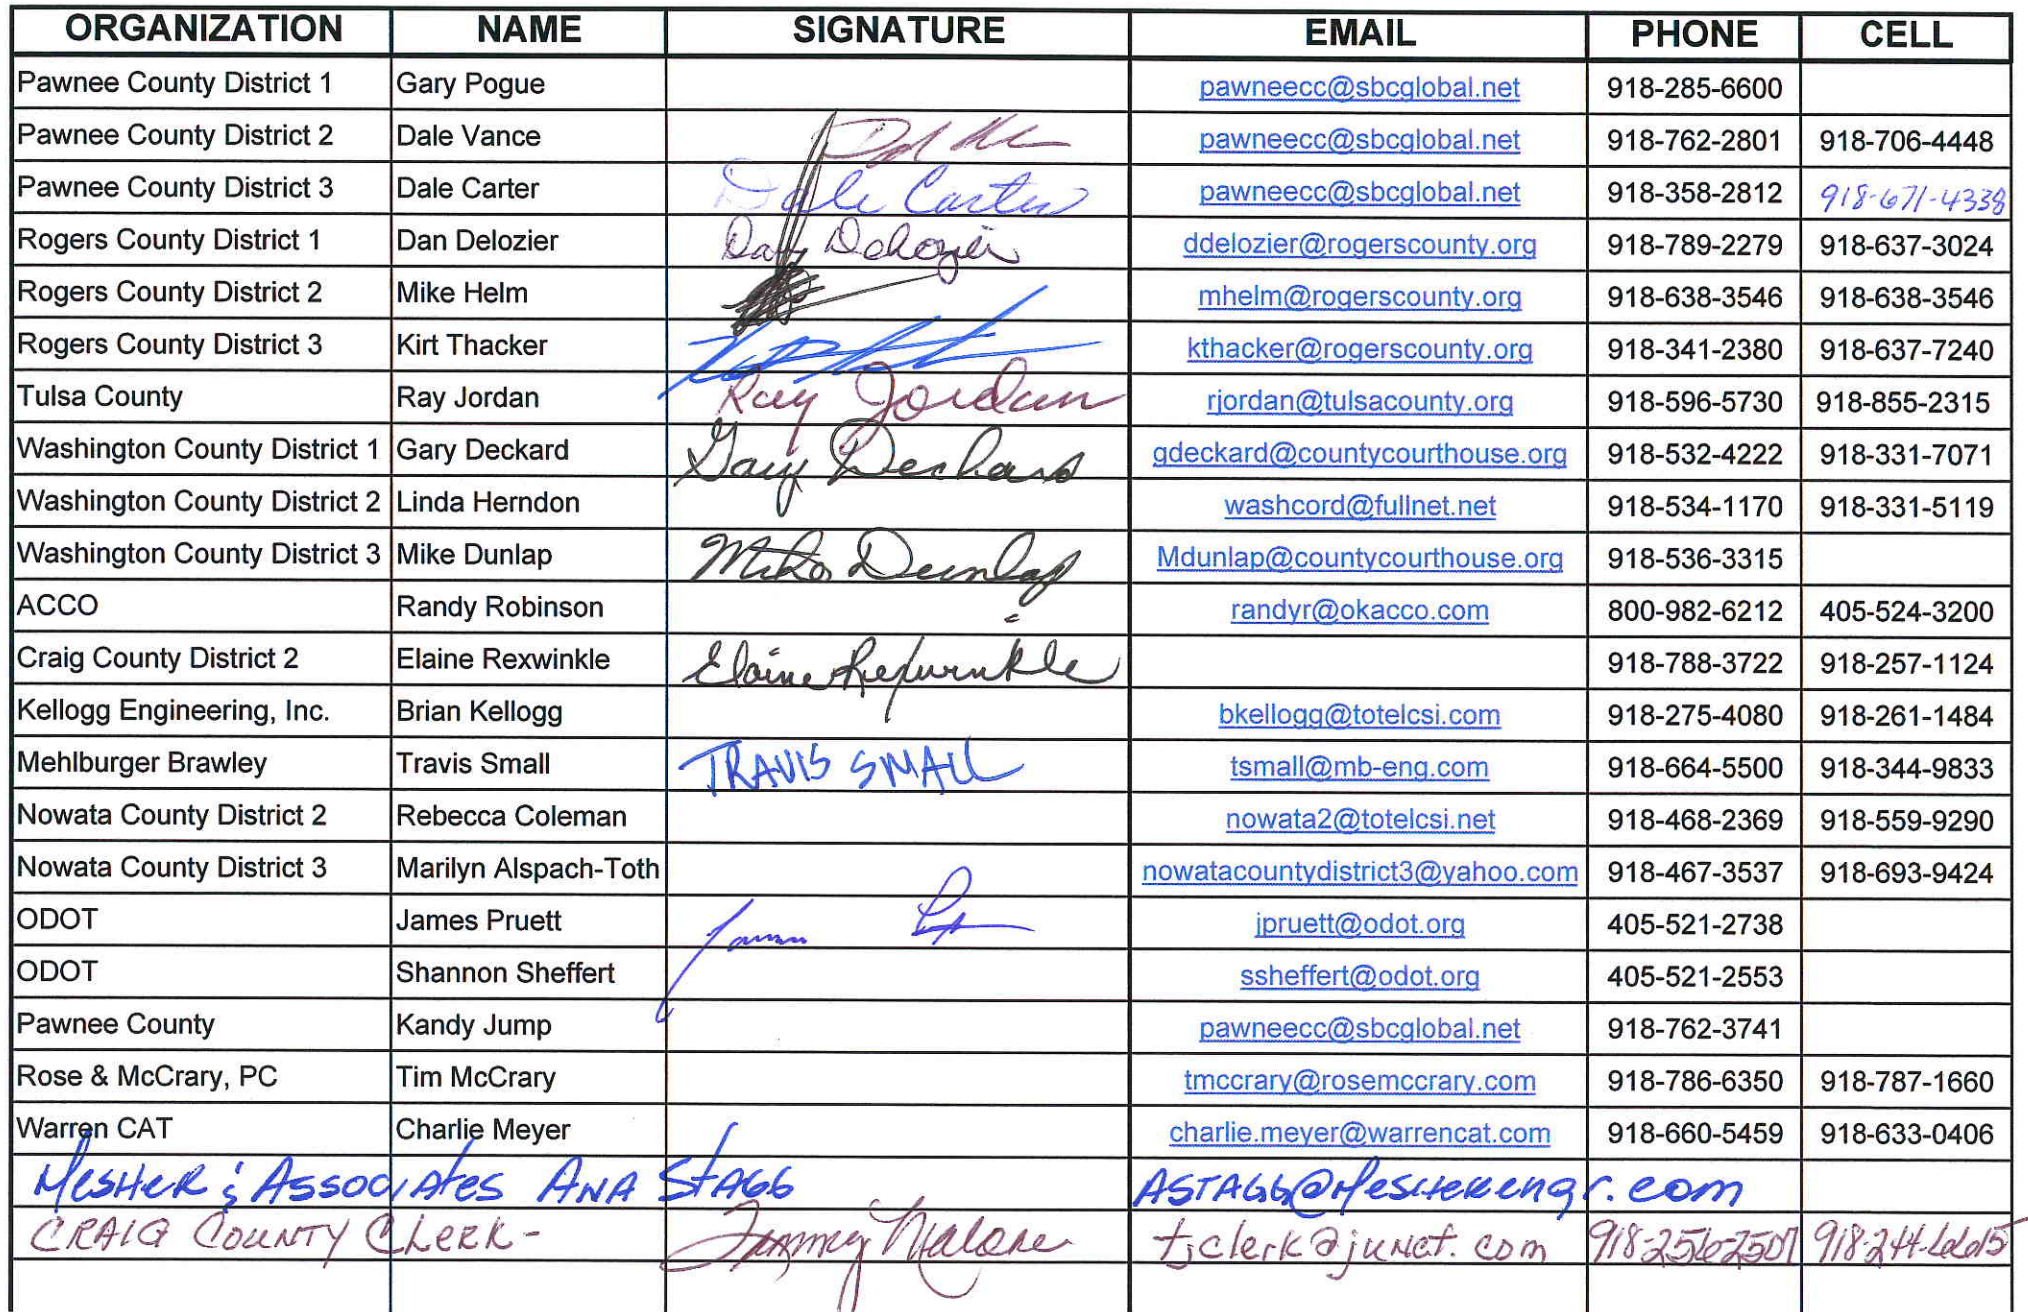 ORGANIZATION NAME SIGNATURE EMAIL PHONE CELL
Pawnee County District 1 Gary Pogue pawneecc@sbcglobal.net 918-285-6600
Pawnee County District 2 Dale Vance pawneecc@sbcglobal.net 918-762-2801 918-706-4448
Pawnee County District 3 Dale Carter Dale Carter pawneecc@sbcglobal.net 918-358-2812 918-671-4338
Rogers County District 1 Dan Delozier Dan Delozier ddelozier@rogerscounty.org 918-789-2279 918-637-3024
Rogers County District 2 Mike Helm mhelm@rogerscounty.org 918-638-3546 918-638-3546
Rogers County District 3 Kirt Thacker kthacker@rogerscounty.org 918-341-2380 918-637-7240
Tulsa County Ray Jordan Ray Jordan rjordan@tulsacounty.org 918-596-5730 918-855-2315
Washington County District 1 Gary Deckard Gary Deckard gdeckard@countycourthouse.org 918-532-4222 918-331-7071
Washington County District 2 Linda Herndon washcord@fullnet.net 918-534-1170 918-331-5119
Washington County District 3 Mike Dunlap Mike Dunlap Mdunlap@countycourthouse.org 918-536-3315
ACCO Randy Robinson randyr@okacco.com 800-982-6212 405-524-3200
Craig County District 2 Elaine Rexwinkle Elaine Rexwinkle 918-788-3722 918-257-1124
Kellogg Engineering, Inc. Brian Kellogg bkellogg@totelcsi.com 918-275-4080 918-261-1484
Mehlburger Brawley Travis Small TRAVIS SMALL tsmall@mb-eng.com 918-664-5500 918-344-9833
Nowata County District 2 Rebecca Coleman nowata2@totelcsi.net 918-468-2369 918-559-9290
Nowata County District 3 Marilyn Alspach-Toth nowatacountydistrict3@yahoo.com 918-467-3537 918-693-9424
ODOT James Pruett jpruett@odot.org 405-521-2738
ODOT Shannon Sheffert ssheffert@odot.org 405-521-2553
Pawnee County Kandy Jump pawneecc@sbcglobal.net 918-762-3741
Rose & McCrary, PC Tim McCrary tmccrary@rosemccrary.com 918-786-6350 918-787-1660
Warren CAT Charlie Meyer charlie.meyer@warrencat.com 918-660-5459 918-633-0406
MESHEK & ASSOCIATES ANA STAGG ASTAGG@MESHEKENGR.COM
CRAIG COUNTY CLERK- Tammy Malone tjclerk@junct.com 918-256-2507 918-244-6615